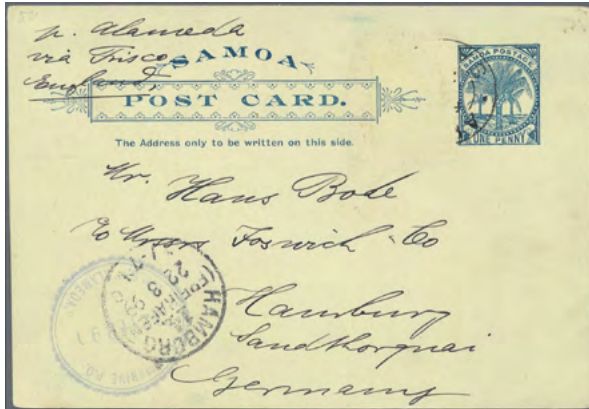 p. Alameda
via Frisco
England,
SAMOA
POST CARD.
The Address only to be written on this side.
SAMOA POSTAGE
ONE PENNY
Mr. Hans Bode
Foswich Co
HAMBURG
Hamburg
Sandthorquai
Germany